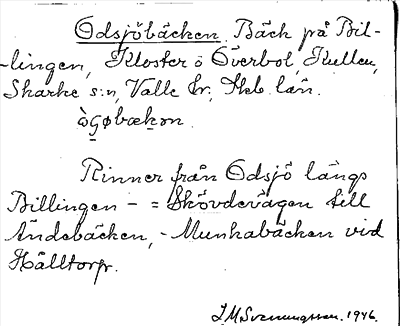 Odsjöbäcken. Bäck på Bil-
-lingen, Kloster o Överbol, Kullen,
Skarke s:n, Valle hr, Skb. län.
Rinner från Odsjö längs
Billingen - = Skövdevägen till
Ändebäcken, - Munkabäcken vid
Hålltorp.
J.M Svenungsson. 1946.